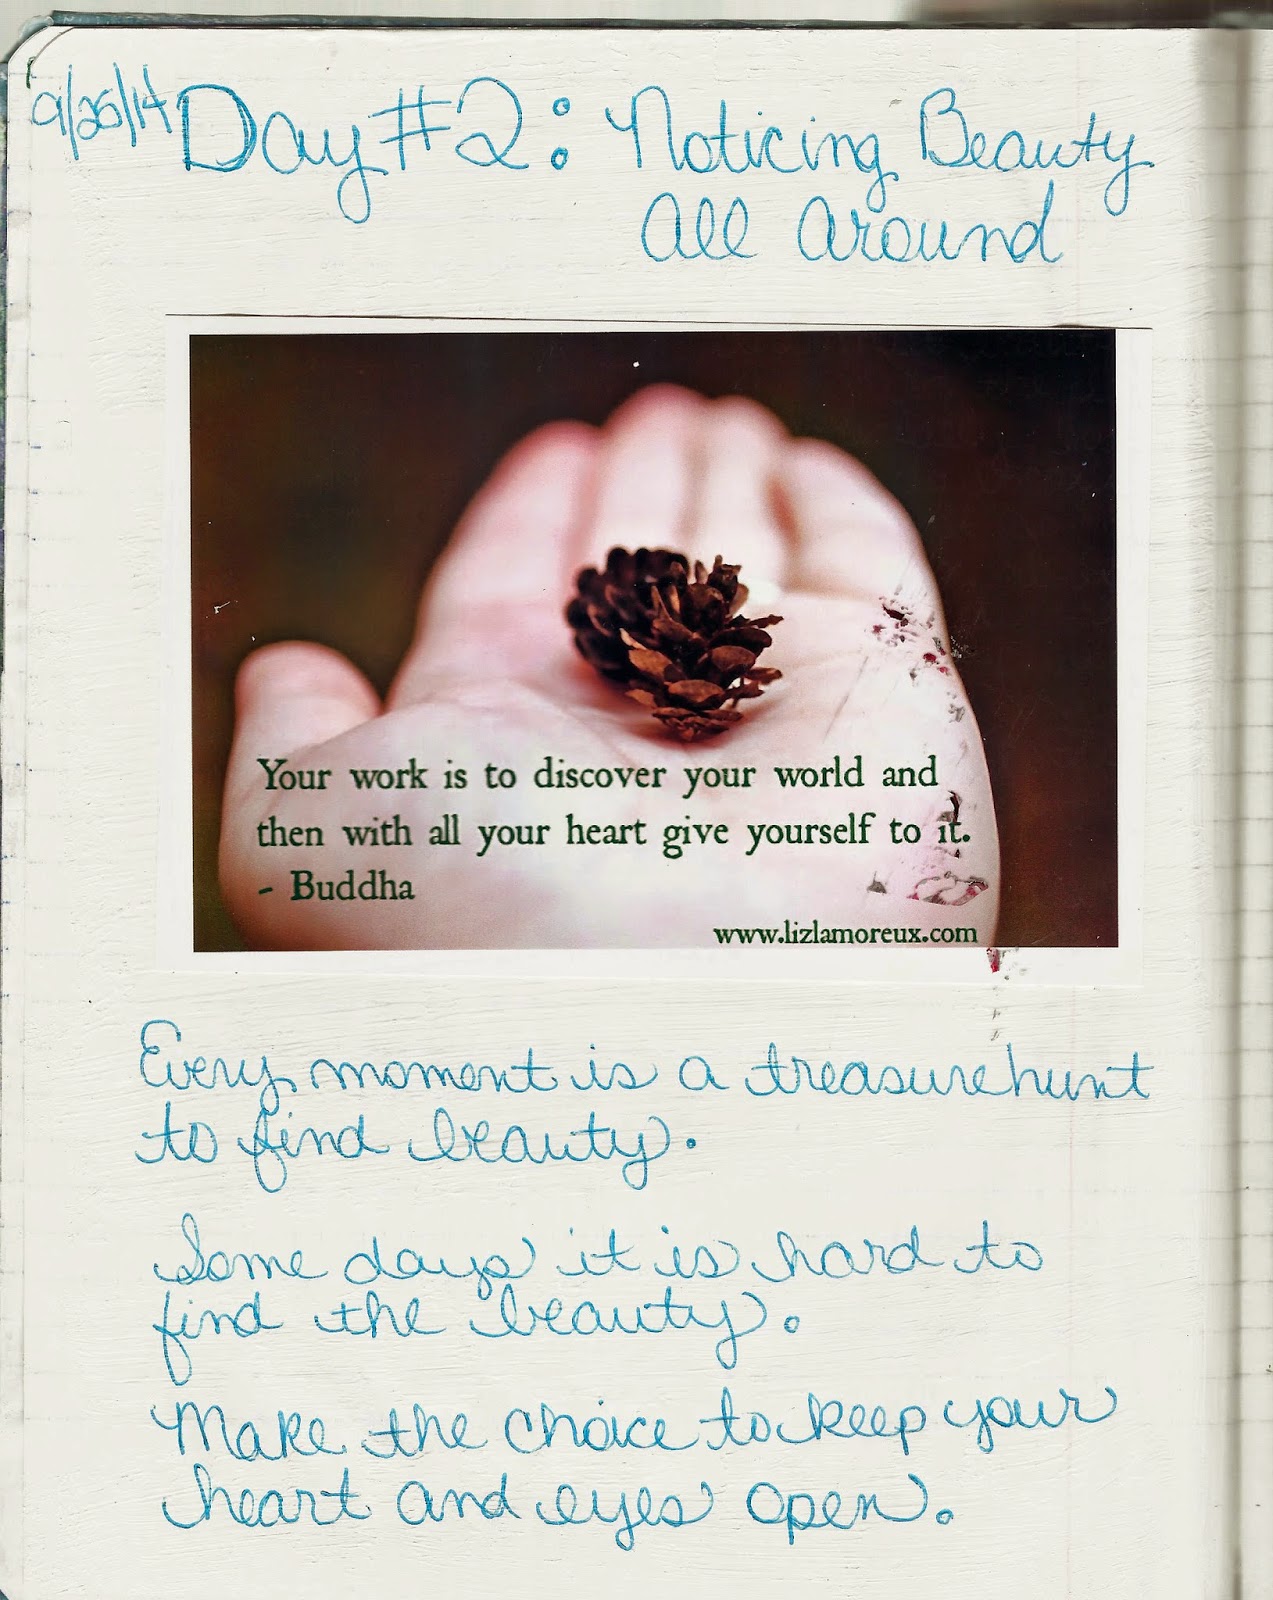 9/25/14 Day #2: Noticing Beauty
All Around
Your work is to discover your world and
then with all your heart give yourself to it.
- Buddha
www.lizlamoreux.com
Every moment is a treasure hunt
to find beauty.
Some days it is hard to
find the beauty.
Make the choice to keep your
heart and eyes open.